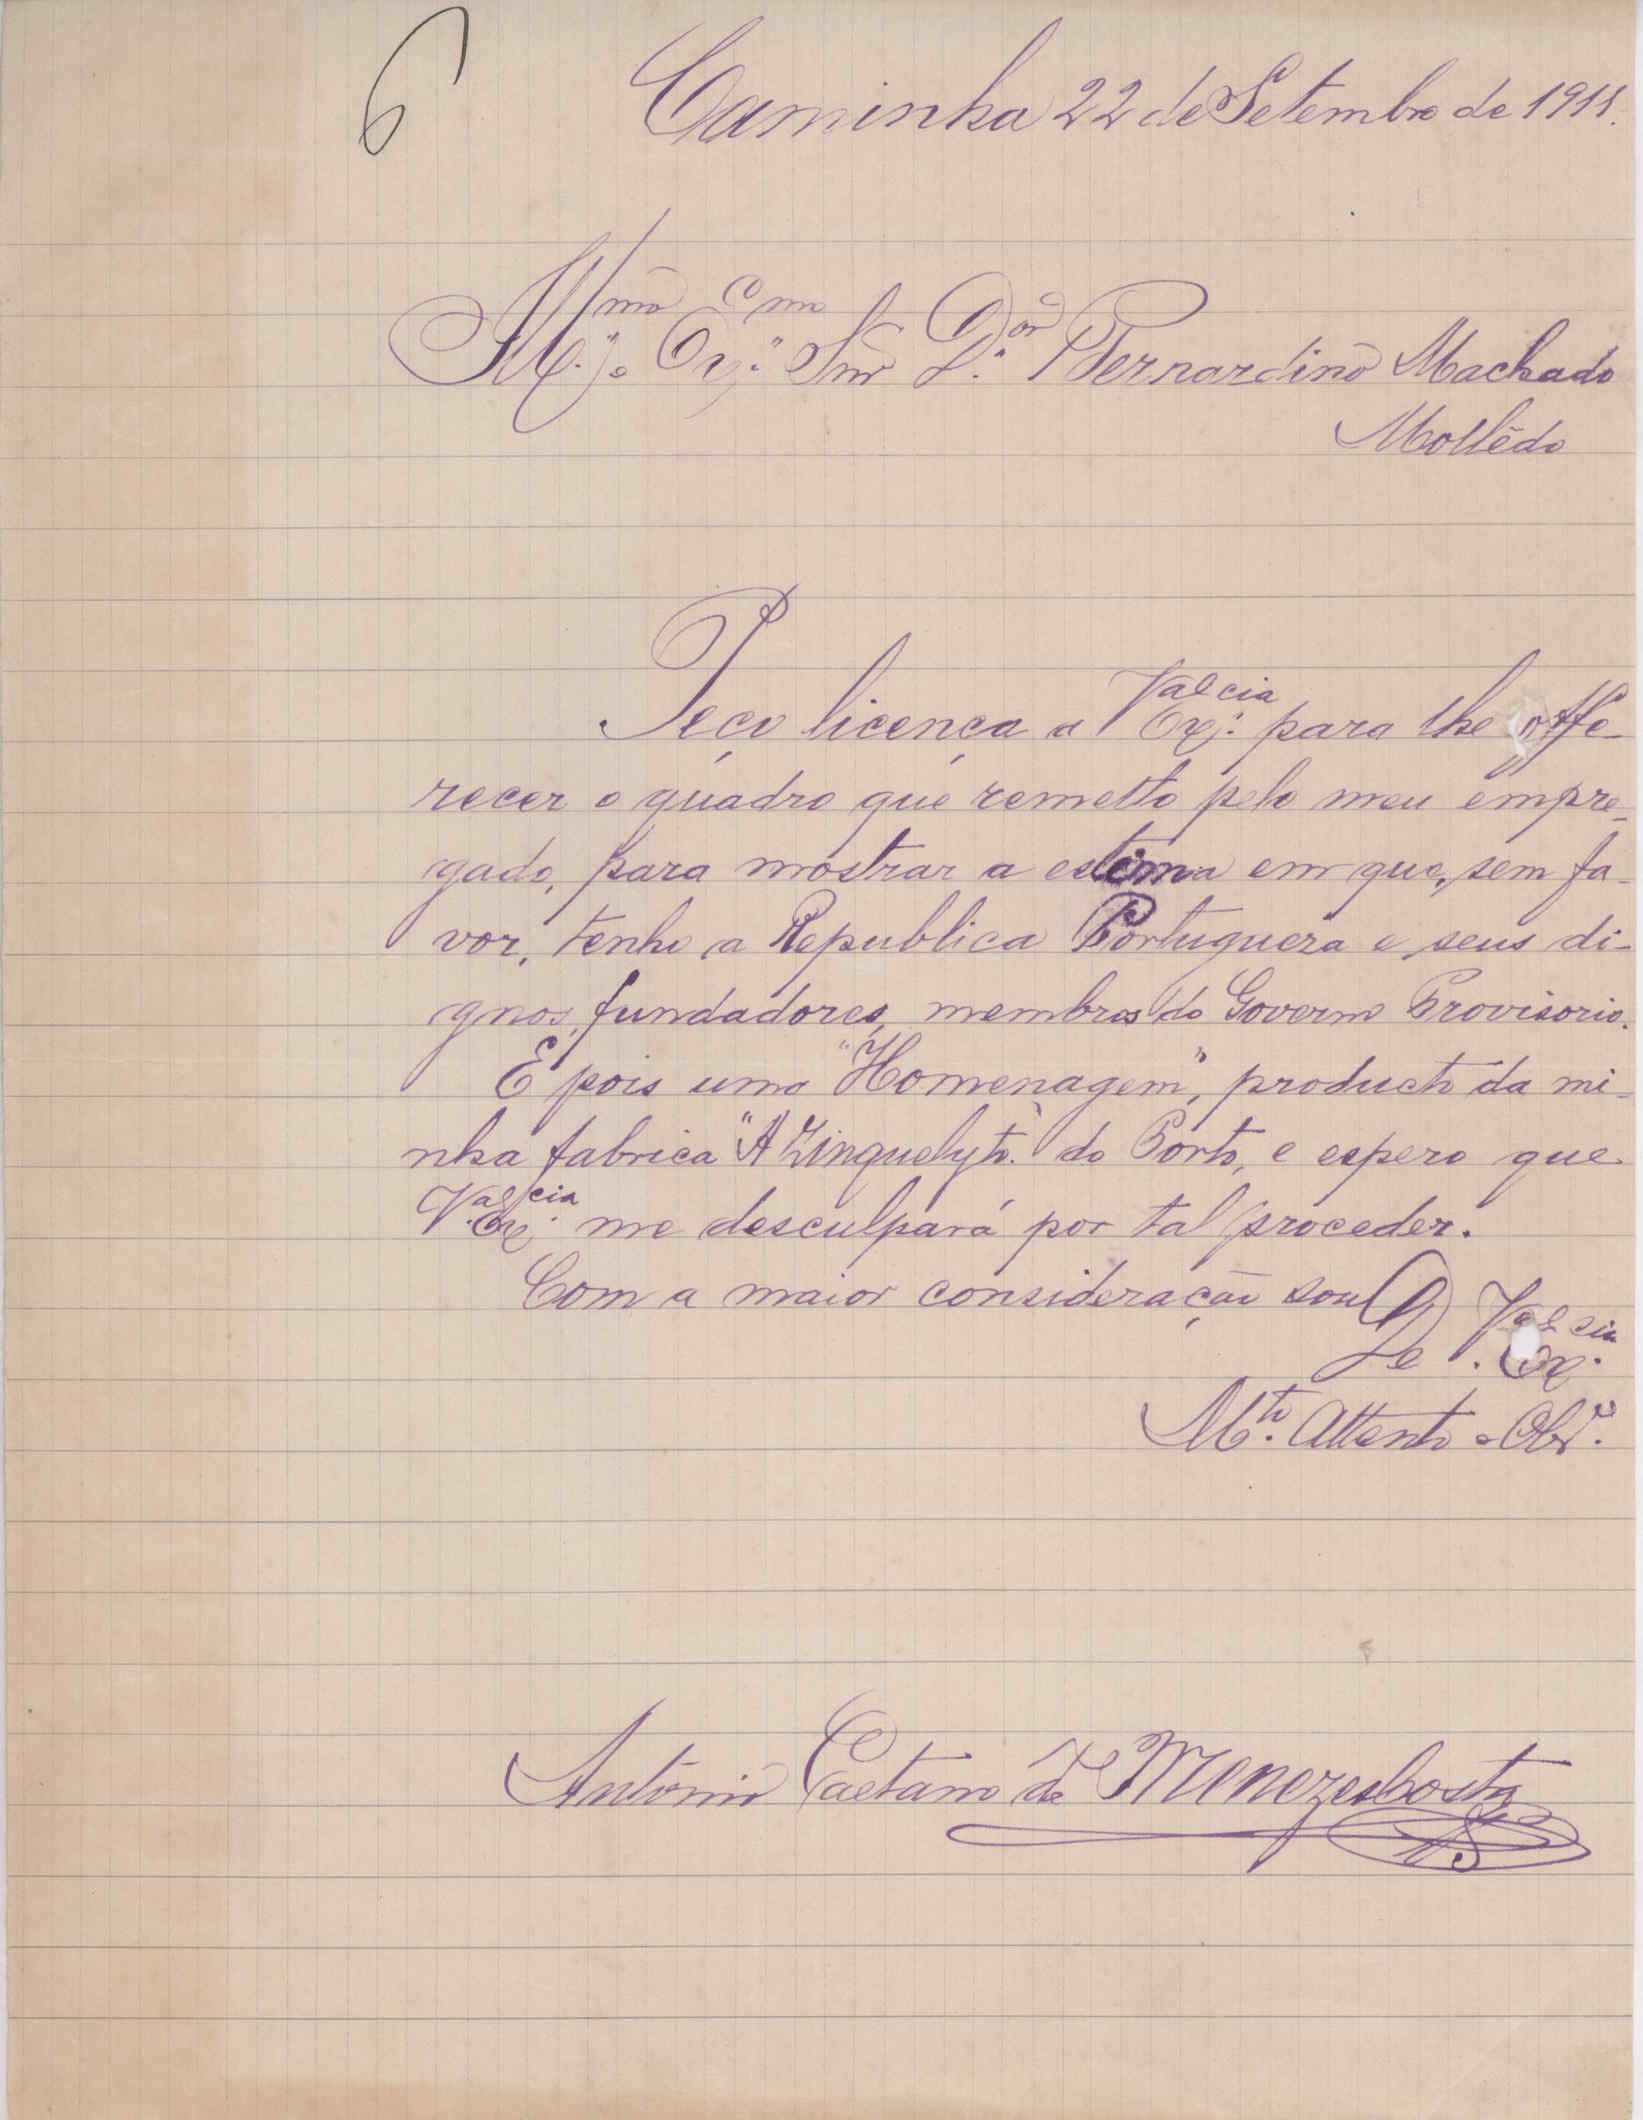 6
Caminha 22 de Setembro de 1911.
Ill.mo e Ex.mo Snr D.or Bernardino Machado
Mollêdo
Peço licença a V.a Ex.cia para lhe offe-
recer o quadro que remetto pelo meu empre-
gado, para mostrar a estima em que, sem fa-
vor, tenho a Republica Portugueza e seus di-
gnos fundadores, membros do Governo Provisorio.
E pois uma "Homenagem", producto da mi-
nha fabrica "A Zinquelyto" do Porto, e espero que
V.a Ex.cia me desculpará por tal proceder.
Com a maior consideração sou
De V.a Ex.cia
M.to Attento e Obr.o
António Caetano de Menezes Costa